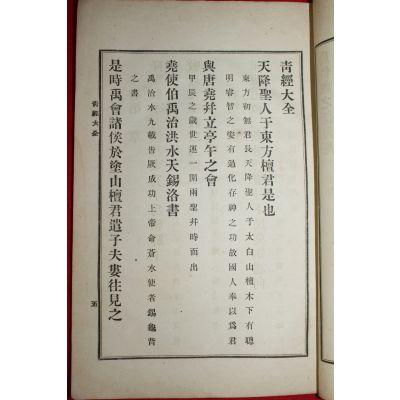 青經大全
天降聖人于東方檀君是也
東方初無君長天降聖人于太白山檀木下有聰
明睿智之姿有過化存神之功故國人奉以爲君
與唐堯幷立亭午之會
甲辰之歲世運一開兩聖幷時而出
堯使伯禹治洪水天錫洛書
禹治水九載告厥成功上帝命蒼水使者錫龜背
之書
是時禹會諸侯於塗山檀君遣子夫婁往見之
青經大全
五